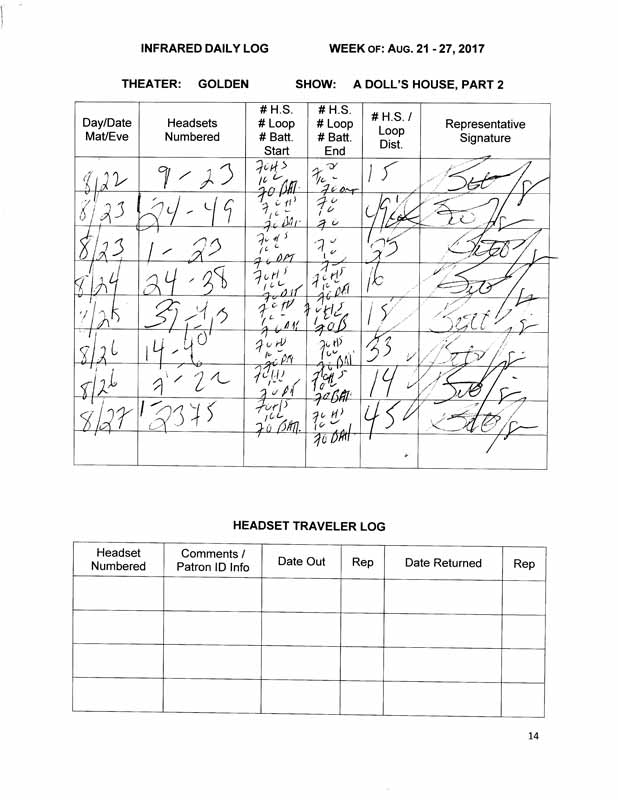 INFRARED DAILY LOG WEEK OF: AUG. 21 - 27, 2017
THEATER: GOLDEN SHOW: A DOLL'S HOUSE, PART 2
Day/Date Mat/Eve Headsets Numbered # H.S. # Loop # Batt. Start # H.S. # Loop # Batt. End # H.S. / Loop Dist. Representative Signature
8/22 9 - 23 70 HS 70 BAT. 15
8/23 24 - 49 70 HS 70 BAT 70
8/23 1 - 23 70 HS 70 BAT 70 23
8/24 24 - 38 70 HS 70 BAT 70 HS 70 BAT 16
70 HS 70 BAT 70 HS 70 B 15
8/26 14 - 70 HS 70 BAT 70 HS 70 BAT 33
8/26 7 - 22 70 HS 70 BAT 70 HS 70 BAT 14
8/27 70 HS 70 BAT. 70 HS 70 BAT 45
HEADSET TRAVELER LOG
Headset Numbered Comments / Patron ID Info Date Out Rep Date Returned Rep
14